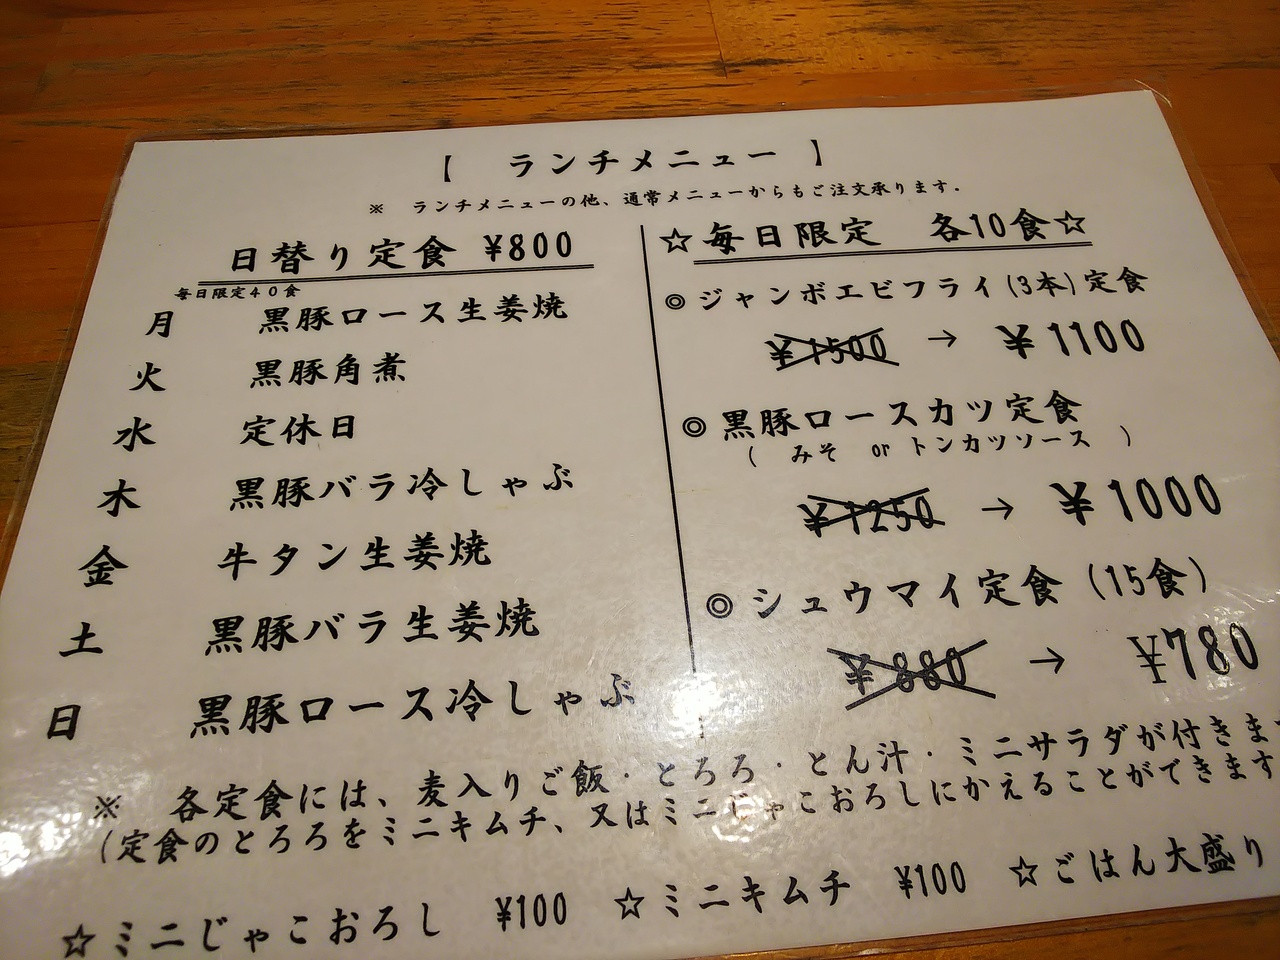 【 ランチメニュー 】
※ ランチメニューの他、通常メニューからもご注文承ります.
日替り定食 ¥800
毎日限定40食
月 黒豚ロース生姜焼
火 黒豚角煮
水 定休日
木 黒豚バラ冷しゃぶ
金 牛タン生姜焼
土 黒豚バラ生姜焼
日 黒豚ロース冷しゃぶ
☆毎日限定 各10食☆
◎ジャンボエビフライ(3本)定食
¥1500 → ¥1100
◎黒豚ロースカツ定食
( みそ or トンカツソース )
¥1250 → ¥1000
◎シュウマイ定食(15食)
¥880 → ¥780
※ 各定食には、麦入りご飯・とろろ・とん汁・ミニサラダが付きま
(定食のとろろをミニキムチ、又はミニじゃこおろしにかえることができます
☆ミニじゃこおろし ¥100 ☆ミニキムチ ¥100 ☆ごはん大盛り